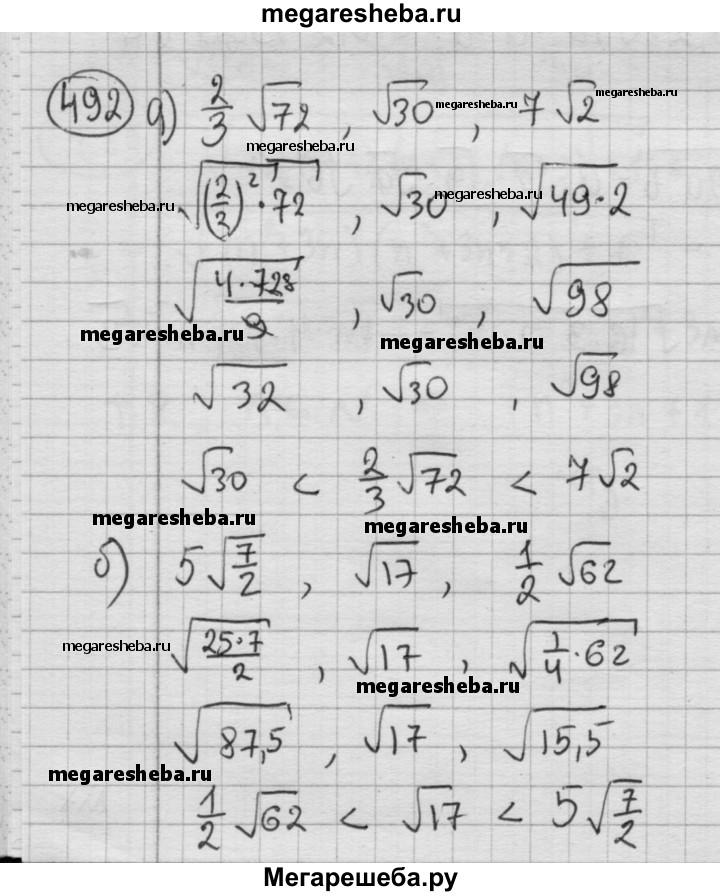 megaresheba.ru
492 а) 2/3 √72 , √30 megaresheba.ru , 7 √2 megaresheba.ru
megaresheba.ru
megaresheba.ru √((2/3)² · 72) , √30 megaresheba.ru , √(49·2)
√(4·72 8 / 9) , √30 , √98
megaresheba.ru megaresheba.ru
√32 , √30 , √98
√30 < 2/3 √72 < 7√2
megaresheba.ru megaresheba.ru
б) 5√(7/2) , √17 , 1/2 √62
megaresheba.ru √(25·7/2) , √17 , √(1/4 · 62)
megaresheba.ru
√87,5 , √17 , √15,5
megaresheba.ru
1/2 √62 < √17 < 5√(7/2)
Мегарешеба.ру